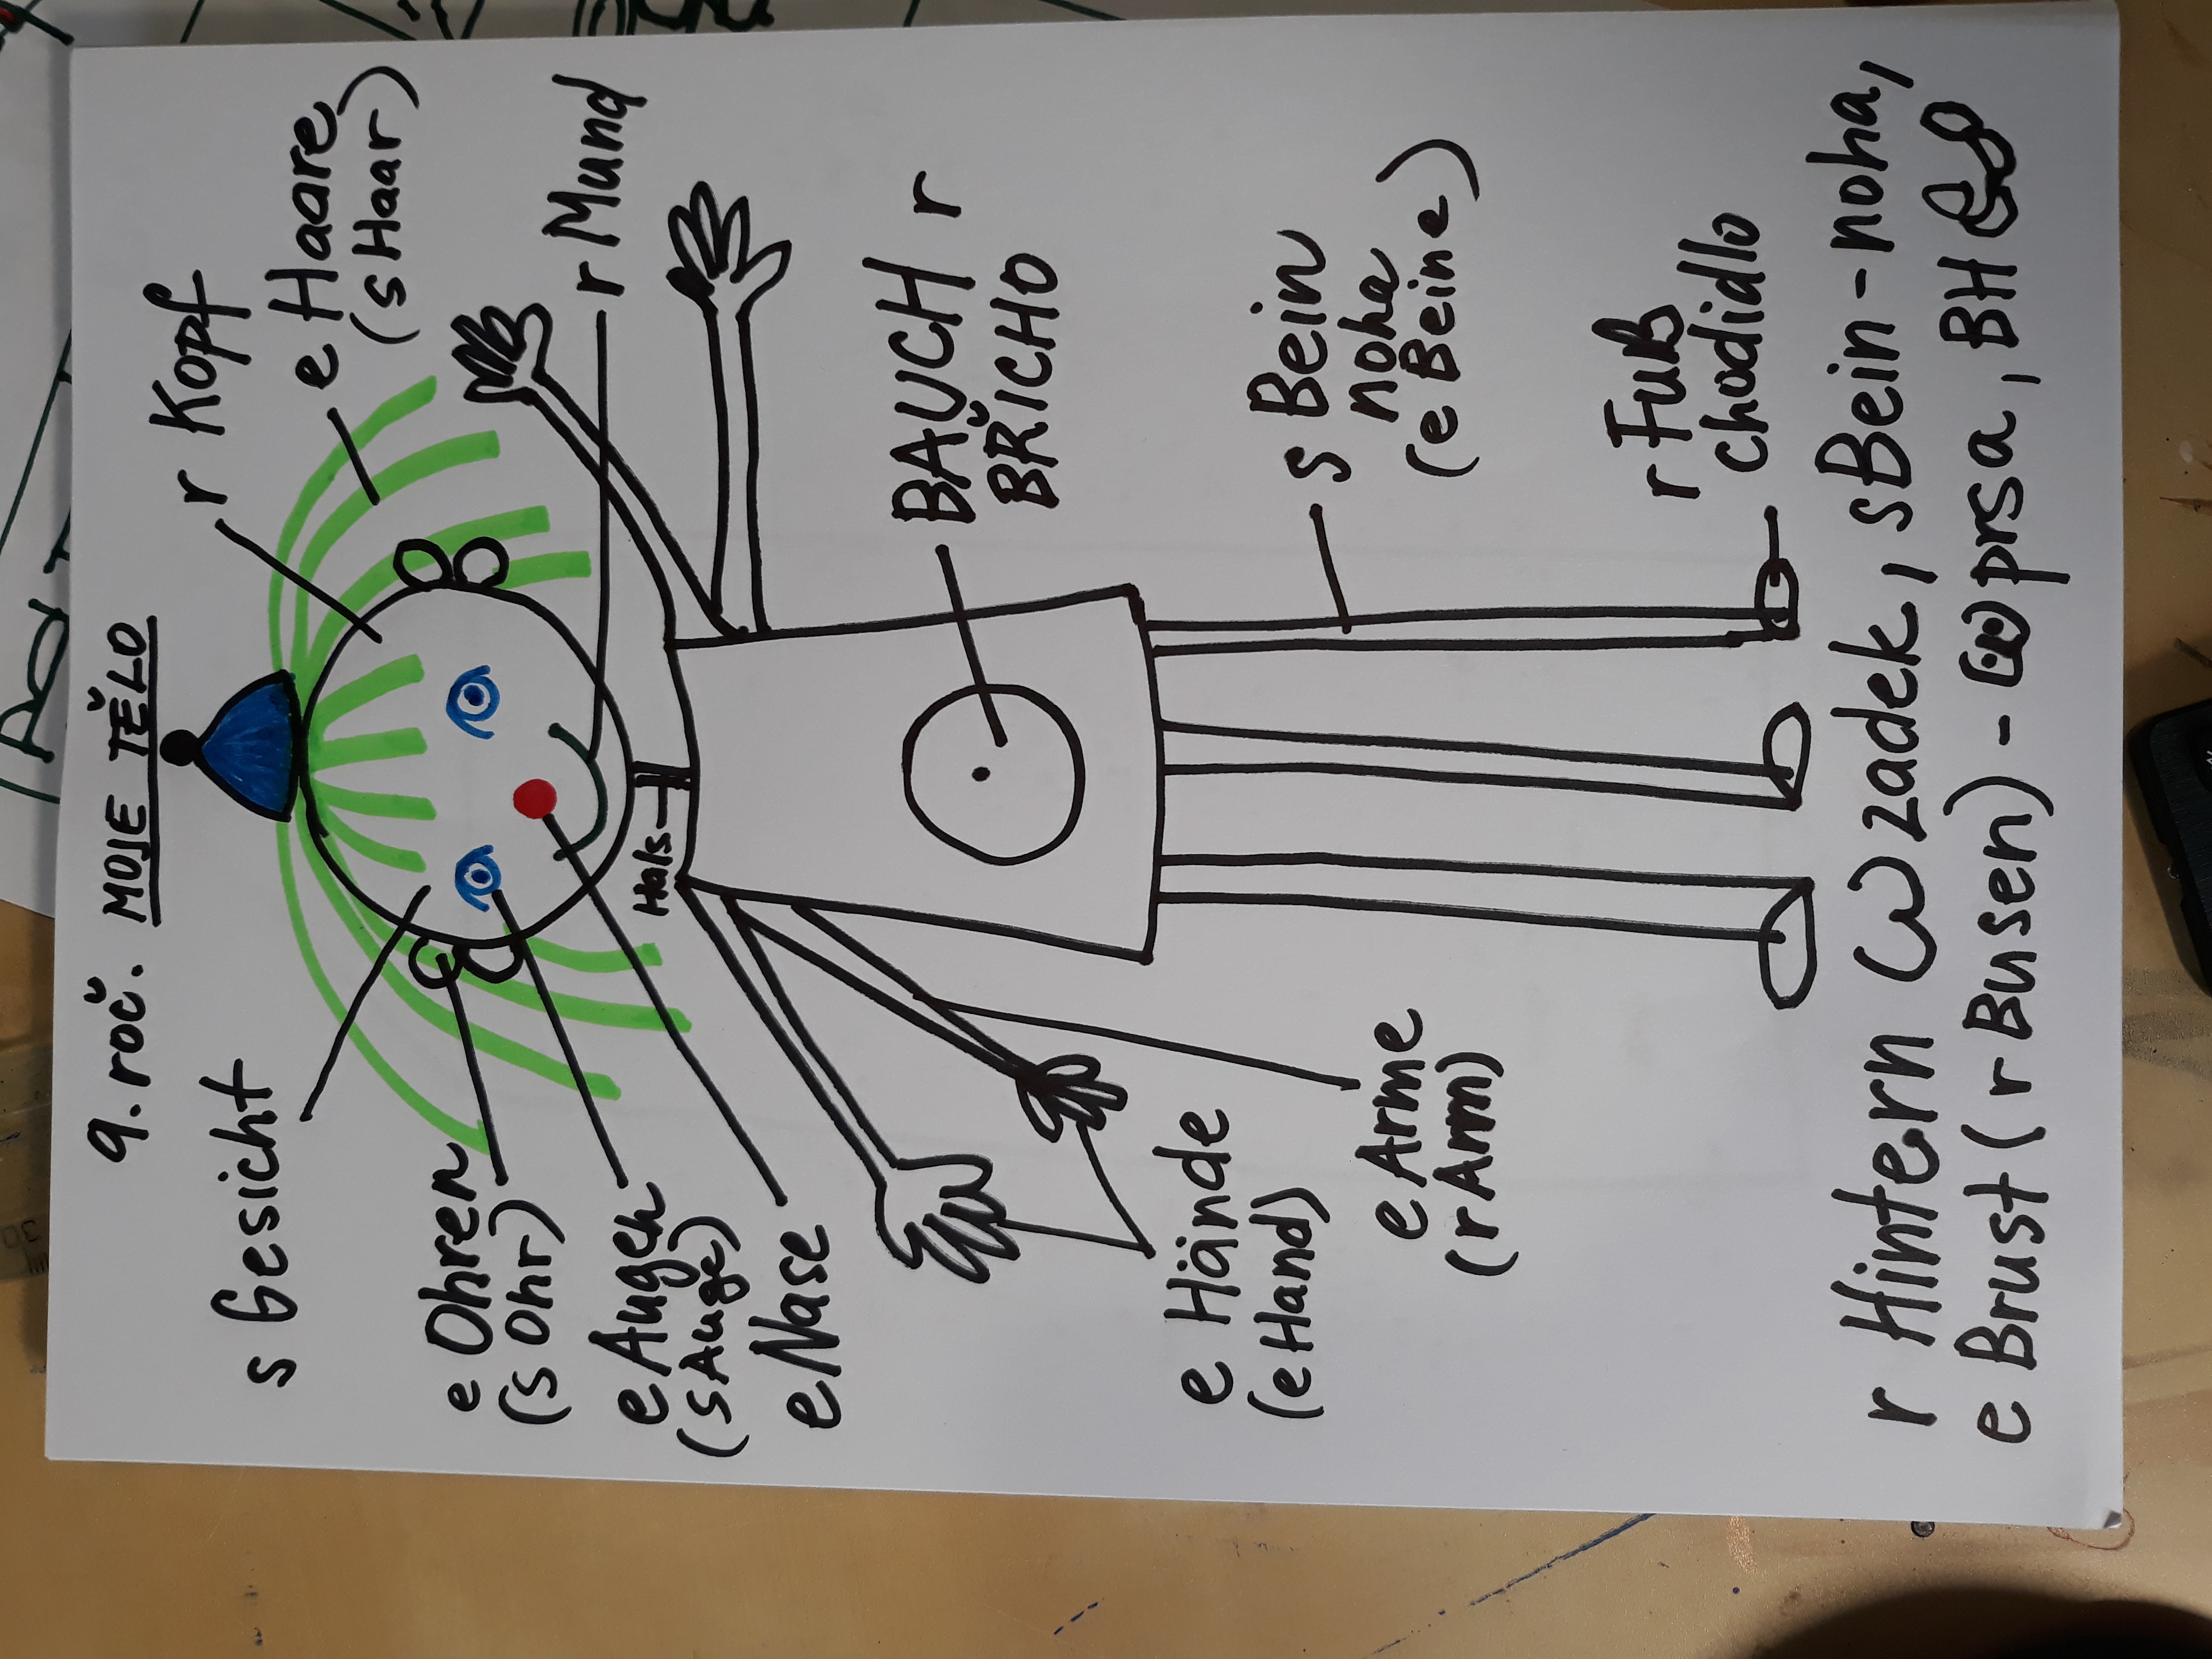 9. roč. MOJE TĚLO
r Kopf
s Gesicht
e Haare
(s Haar)
e Ohren
(s Ohr)
r Mund
e Augen
(s Auge)
e Nase
Hals
BAUCH r
BŘICHO
e Hände
(e Hand)
s Bein
noha
(e Beine)
e Arme
(r Arm)
r Fuß
chodidlo
r Hintern zadek, s Bein - noha,
e Brust (r Busen) - prsa, BH